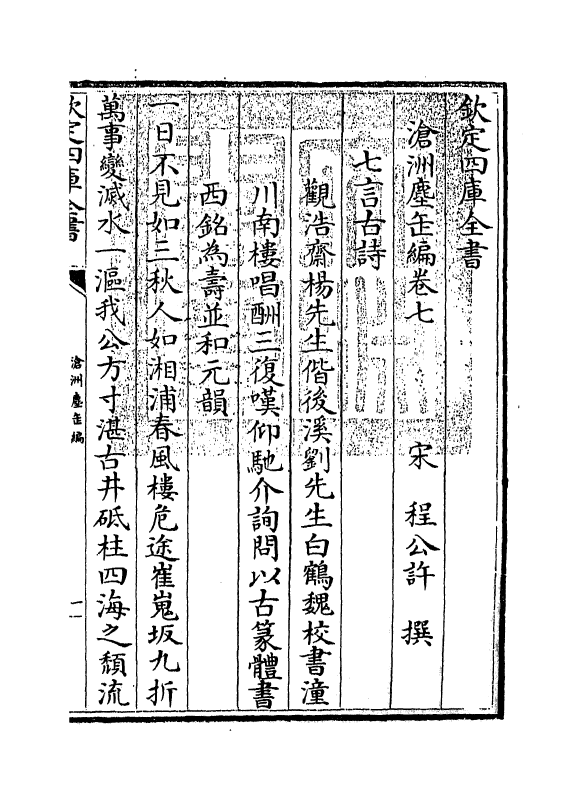 欽定四庫全書
滄洲塵缶編卷七
宋 程公許 撰
七言古詩
觀浩齋楊先生偕後溪劉先生白鶴魏校書潼
川南樓唱酬三復嘆仰馳介詢問以古篆體書
西銘為壽並和元韻
一日不見如三秋人如湘浦春風樓危途崔嵬坂九折
萬事變滅水一漚我公方寸湛古井砥柱四海之頹流
欽定四庫全書
滄洲塵缶編
一